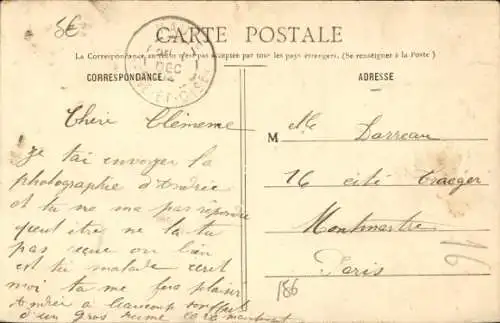 5€
CARTE POSTALE
La Correspondance au recto n'est pas acceptée par tous les pays étrangers. (Se renseigner à la Poste)
CORRESPONDANCE
ADRESSE
DEC
ET-OISE
Chère Clémence
Je t'ai envoyer la
photographie d'Andrée
et tu ne ma pas répondu
peut être ne la tu
pas reçue ou bien
est tu malade ecret
moi tu me fera plaisir
Andrée a beaucoup souffert
d'un gros rhume
M lle Darreau
16 cité Traeger
Montmartre
Paris
16
186